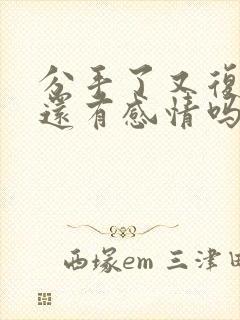 分手了又復
還有感情吗
西塚em 三津田